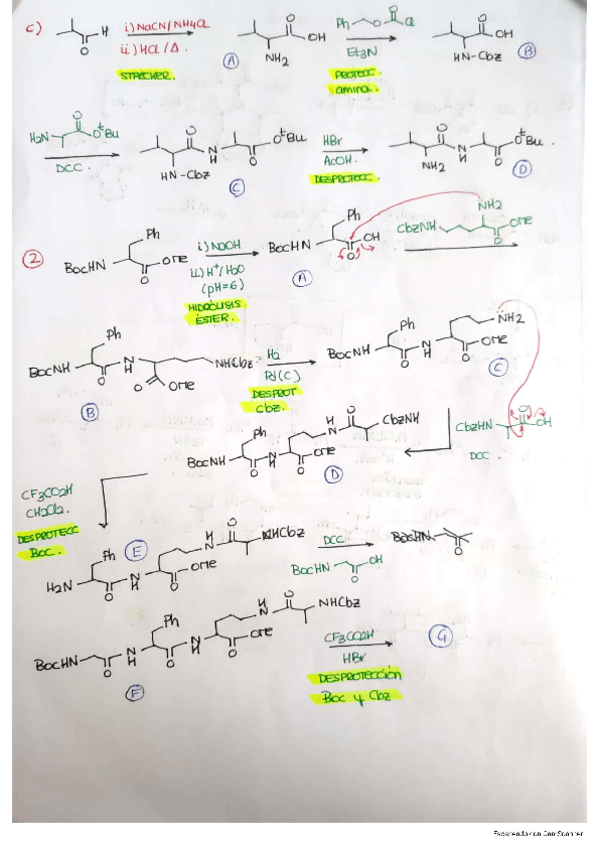 c)
H
O
i) NaCN/NH4Cl
ii) HCl/Δ.
STRECKER.
O
OH
NH2
A
Ph O Cl
Et3N
PROTECC.
amina.
O
OH
HN-Cbz
B
H2N O OtBu
DCC.
O
N
H
OtBu
O
HN-Cbz
C
HBr
AcOH.
DESPROTECC.
O
N
H
OtBu.
O
NH2
D
2
Ph
BocHN
OMe
O
i) NaOH
ii) H+/H2O
(pH=6)
HIDRÓLISIS
ÉSTER.
Ph
BocHN
OH
O
A
NH2
CbzNH
OMe
O
Ph
BocHN
H
N
O
NHCbz
O
OMe
B
H2
Pd(C)
DESPROT
Cbz.
Ph
BocHN
H
N
O
NH2
OMe
O
C
CbzHN
O
OH
DCC.
Ph
BocHN
O
H
N
O
OMe
H
N
O
CbzNH
D
CF3CO2H
CH2Cl2.
DESPROTECC
BOC.
E
Ph
H2N
O
N
H
O
OMe
H
N
O
NHCbz
DCC.
BocHN
O
OH
BocHN
BocHN
O
H
N
Ph
O
N
H
O
OMe
H
N
O
NHCbz
F
CF3CO2H
HBr
DESPROTECCIÓN
Boc y Cbz
G
Escaneado con CamScanner